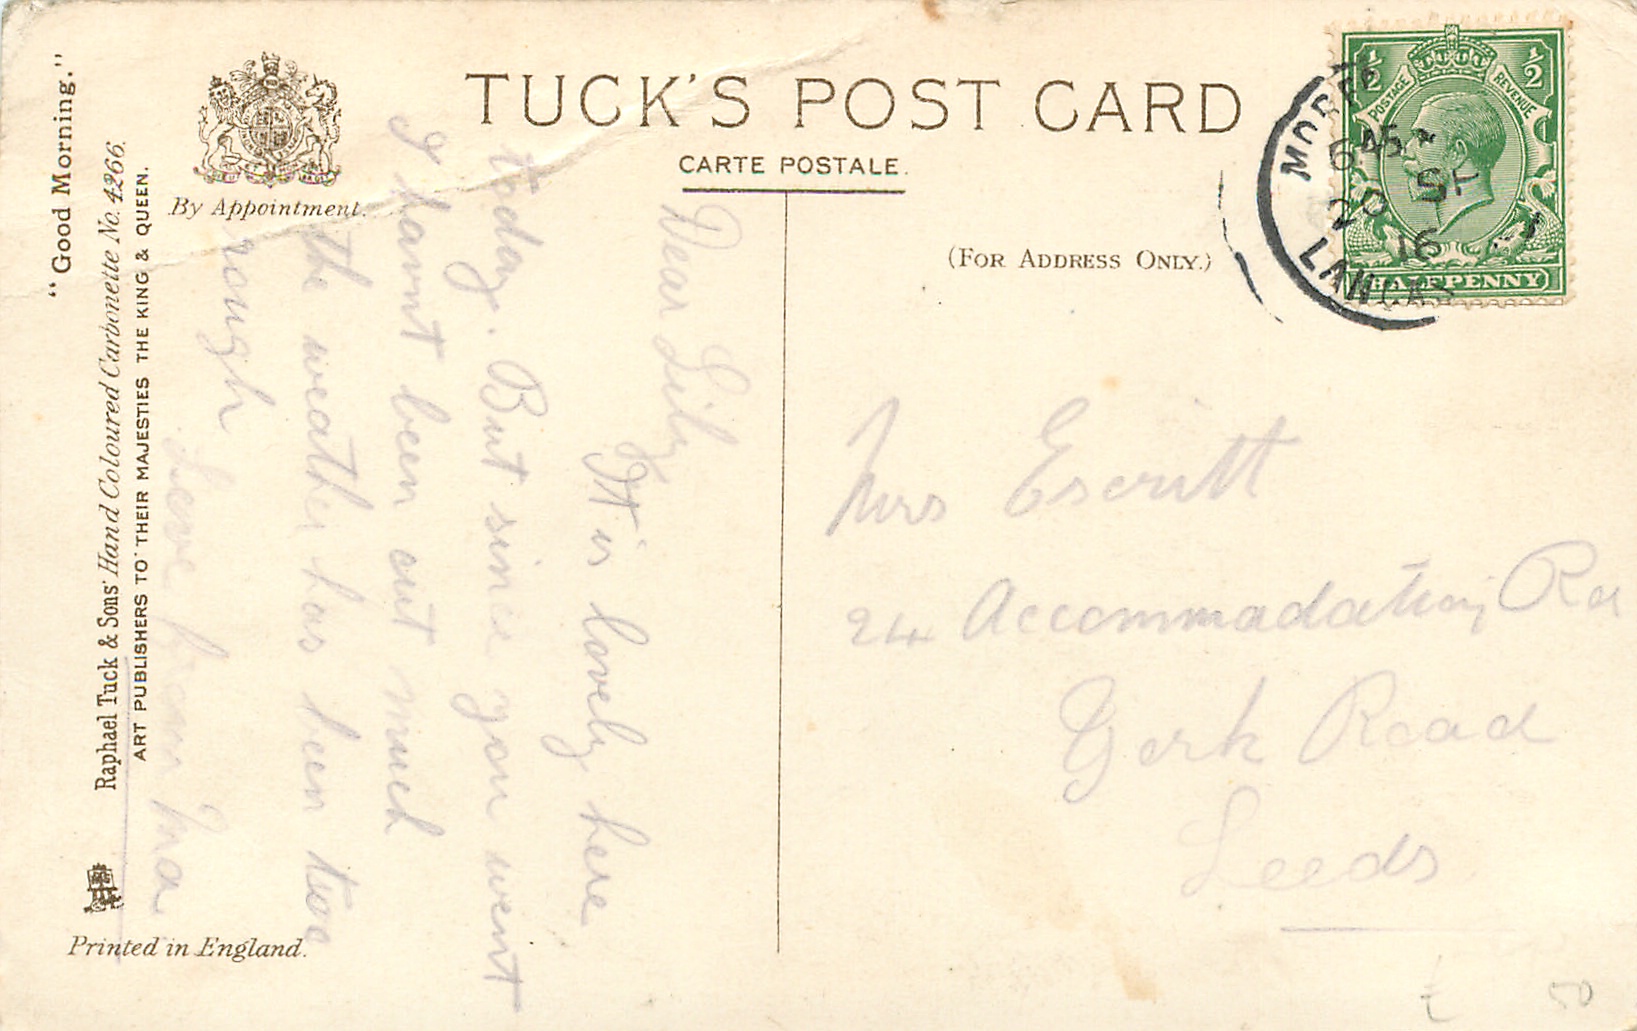 TUCK'S POST CARD
CARTE POSTALE.
(FOR ADDRESS ONLY.)
By Appointment.
"Good Morning."
Raphael Tuck & Sons' Hand Coloured Carbonette No. 4266.
ART PUBLISHERS TO THEIR MAJESTIES THE KING & QUEEN.
Printed in England.
Dear Lily
It is lovely here
today. But since you went
I havnt been out much
the weather has been too
rough
Love from Ma
Mrs Escritt
24 Accommadation Rd
York Road
Leeds
½ ½
POSTAGE REVENUE
HALFPENNY
6 45
20 SP
16
50